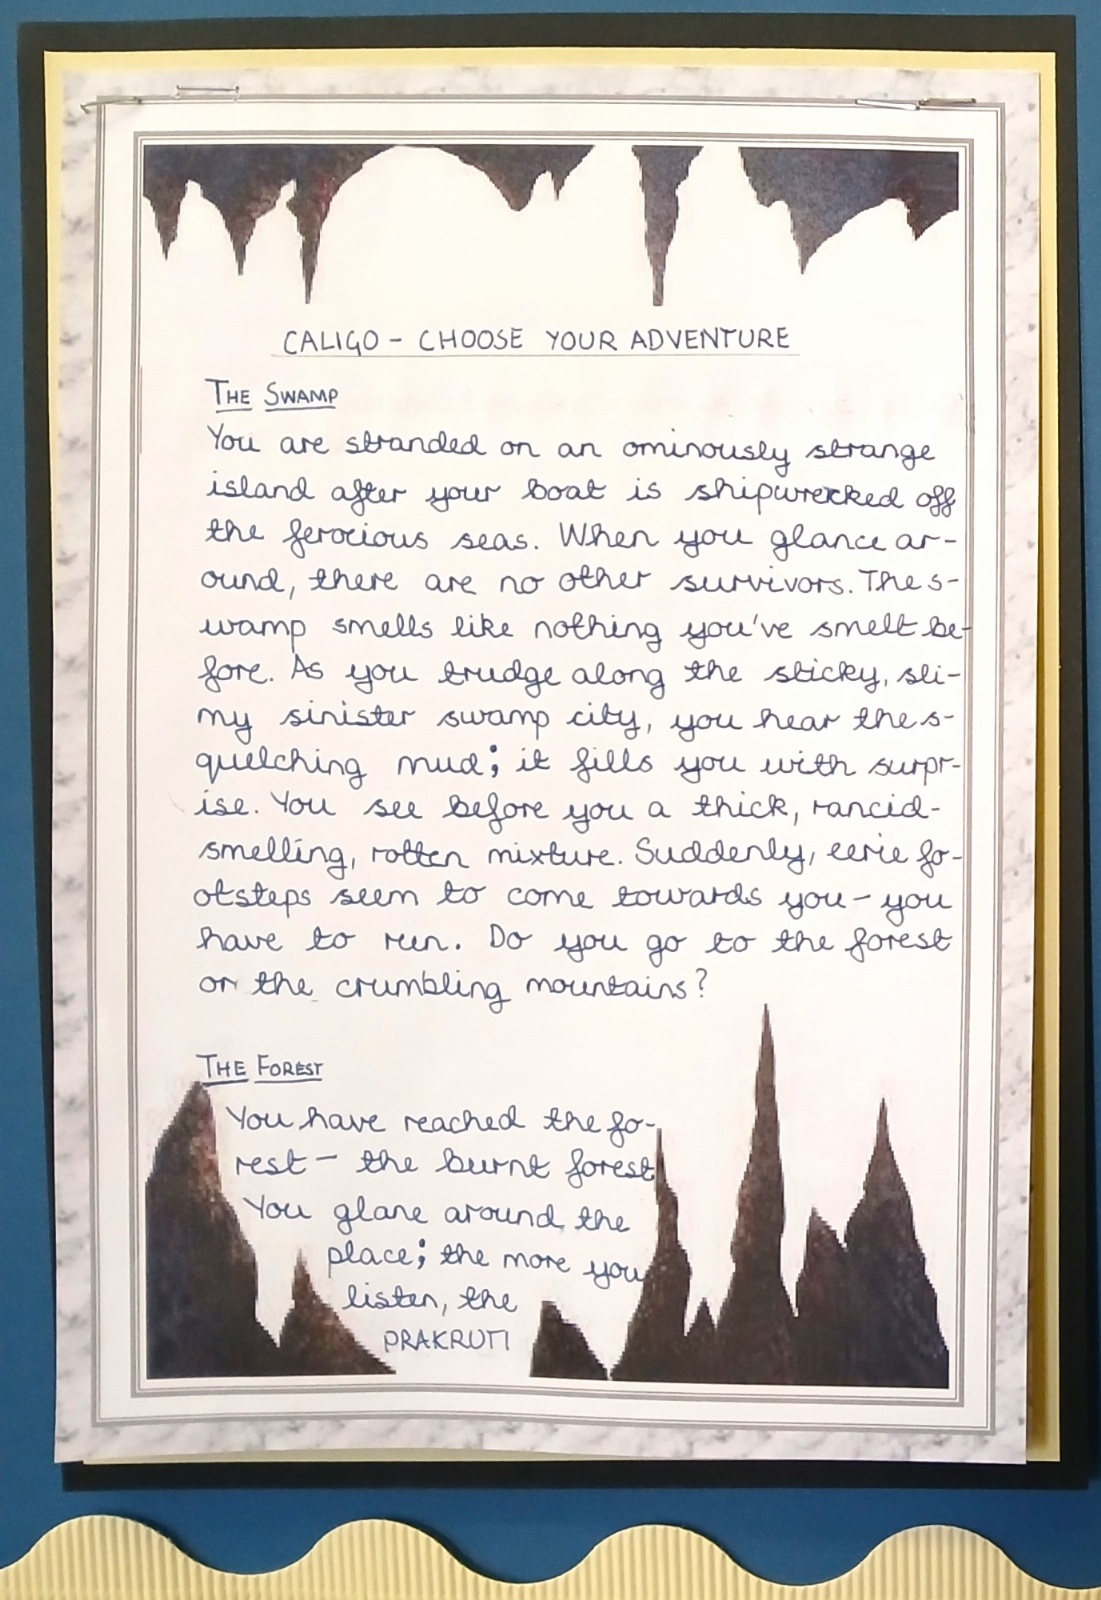 CALIGO - CHOOSE YOUR ADVENTURE
THE SWAMP
You are stranded on an ominously strange
island after your boat is shipwrecked off
the ferocious seas. When you glance ar-
ound, there are no other survivors. The s-
wamp smells like nothing you've smelt be-
fore. As you trudge along the sticky, sli-
my sinister swamp city, you hear the s-
quelching mud; it fills you with surpr-
ise. You see before you a thick, rancid-
smelling, rotten mixture. Suddenly, eerie fo-
otsteps seem to come towards you - you
have to run. Do you go to the forest
or the crumbling mountains?
THE FOREST
You have reached the fo-
rest - the burnt forest
You glane around the
place; the more you
listen, the
PRAKRUTI